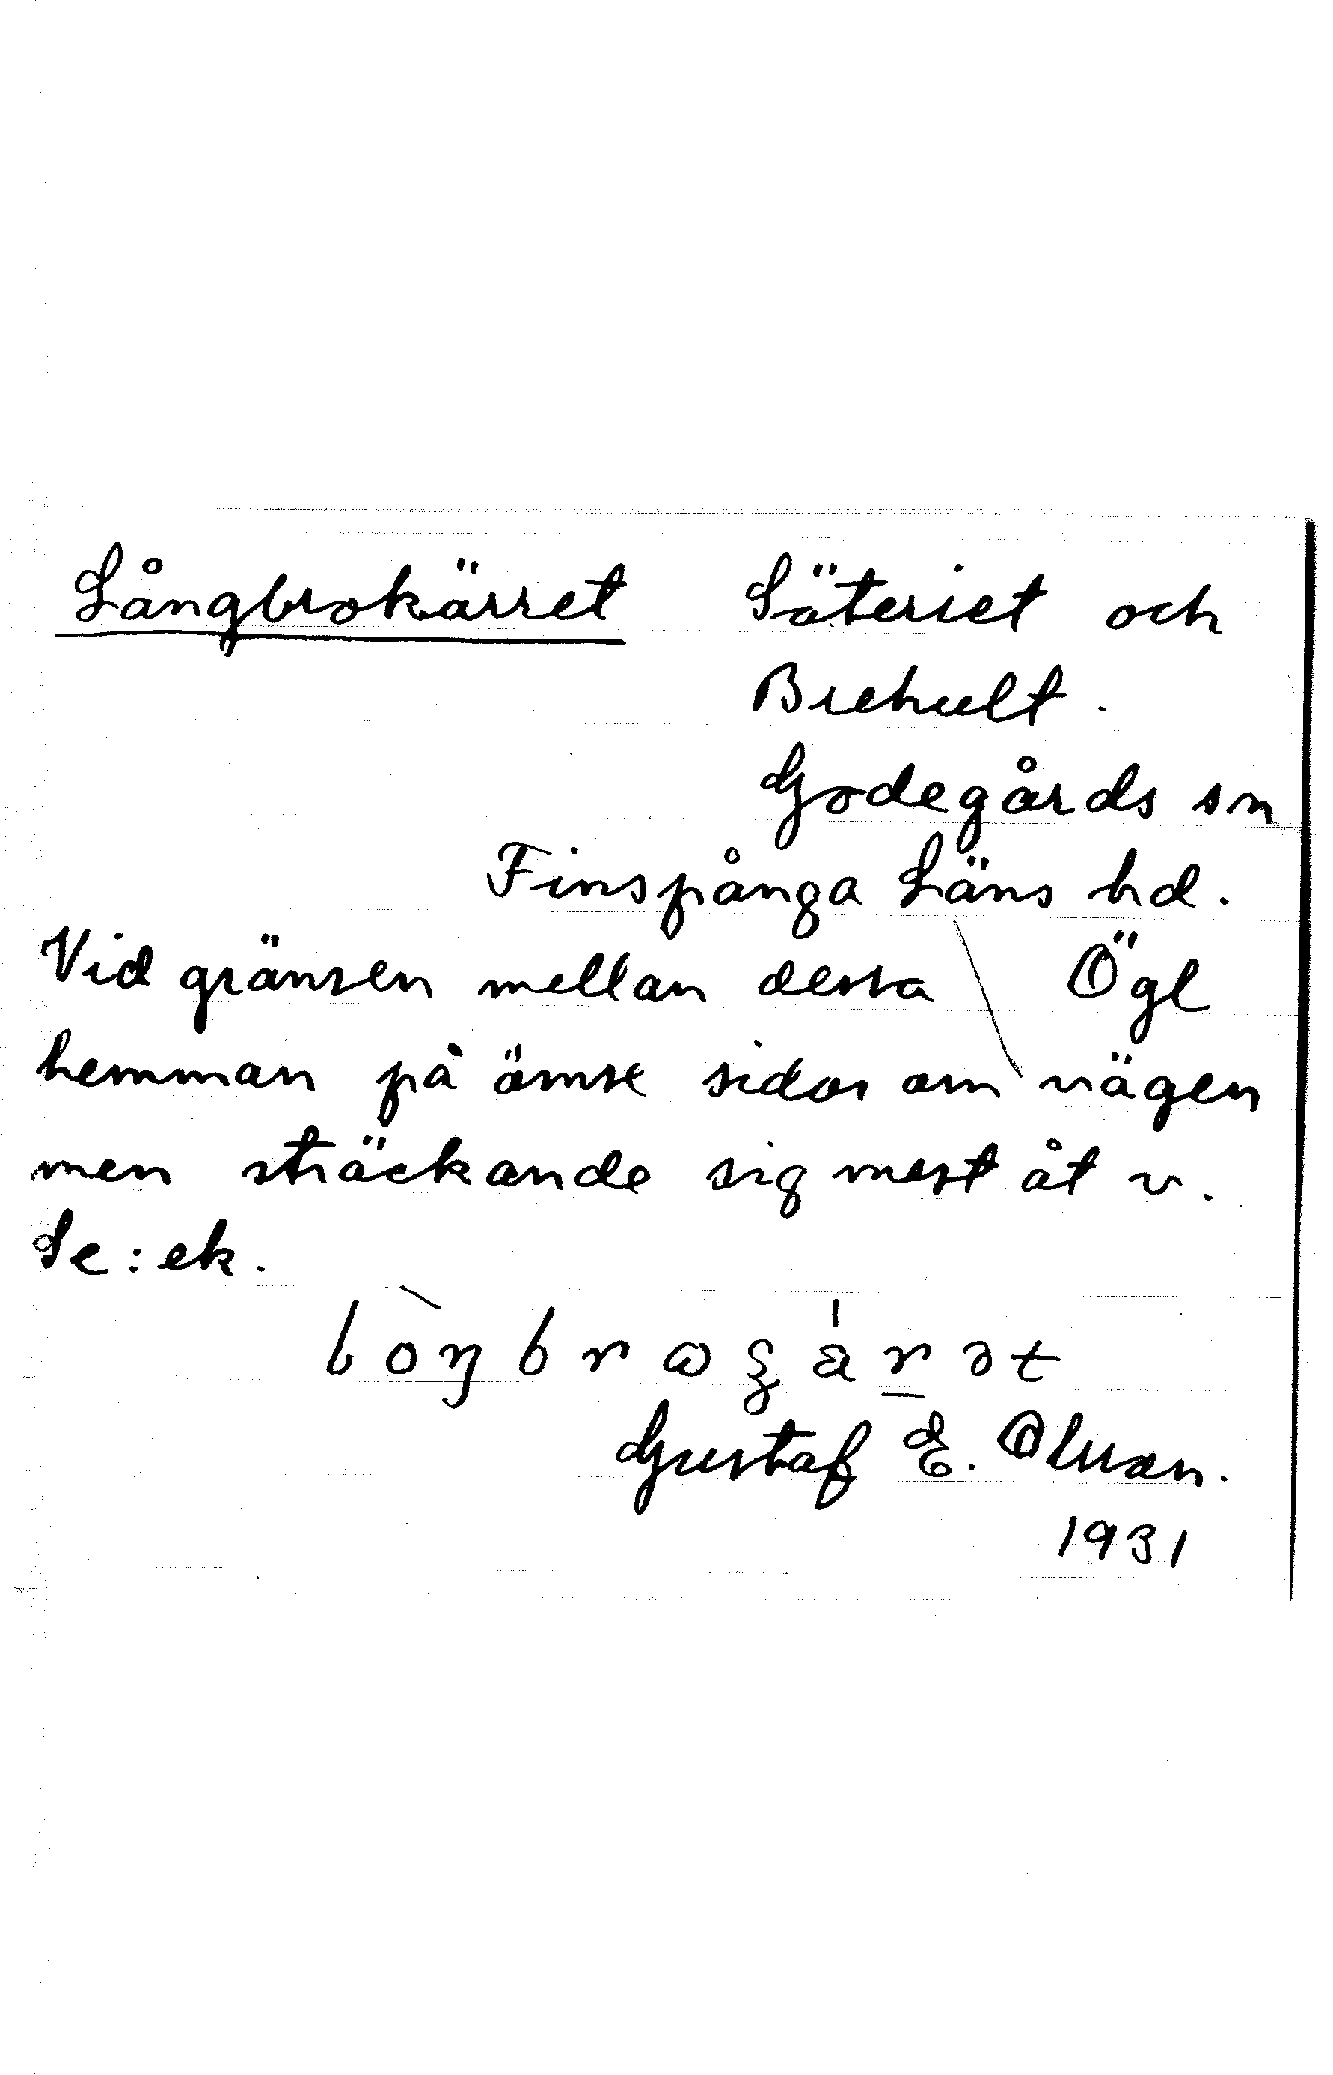 Långbrokärret Säteriet och
Brehult.
Godegårds sn
Finspånga Läns hd.
Vid gränsen mellan dessa Ögl
hemman på ömse sidor om vägen
men sträckande sig mest åt v.
Se: ek.
Gustaf E. Olsson.
1931